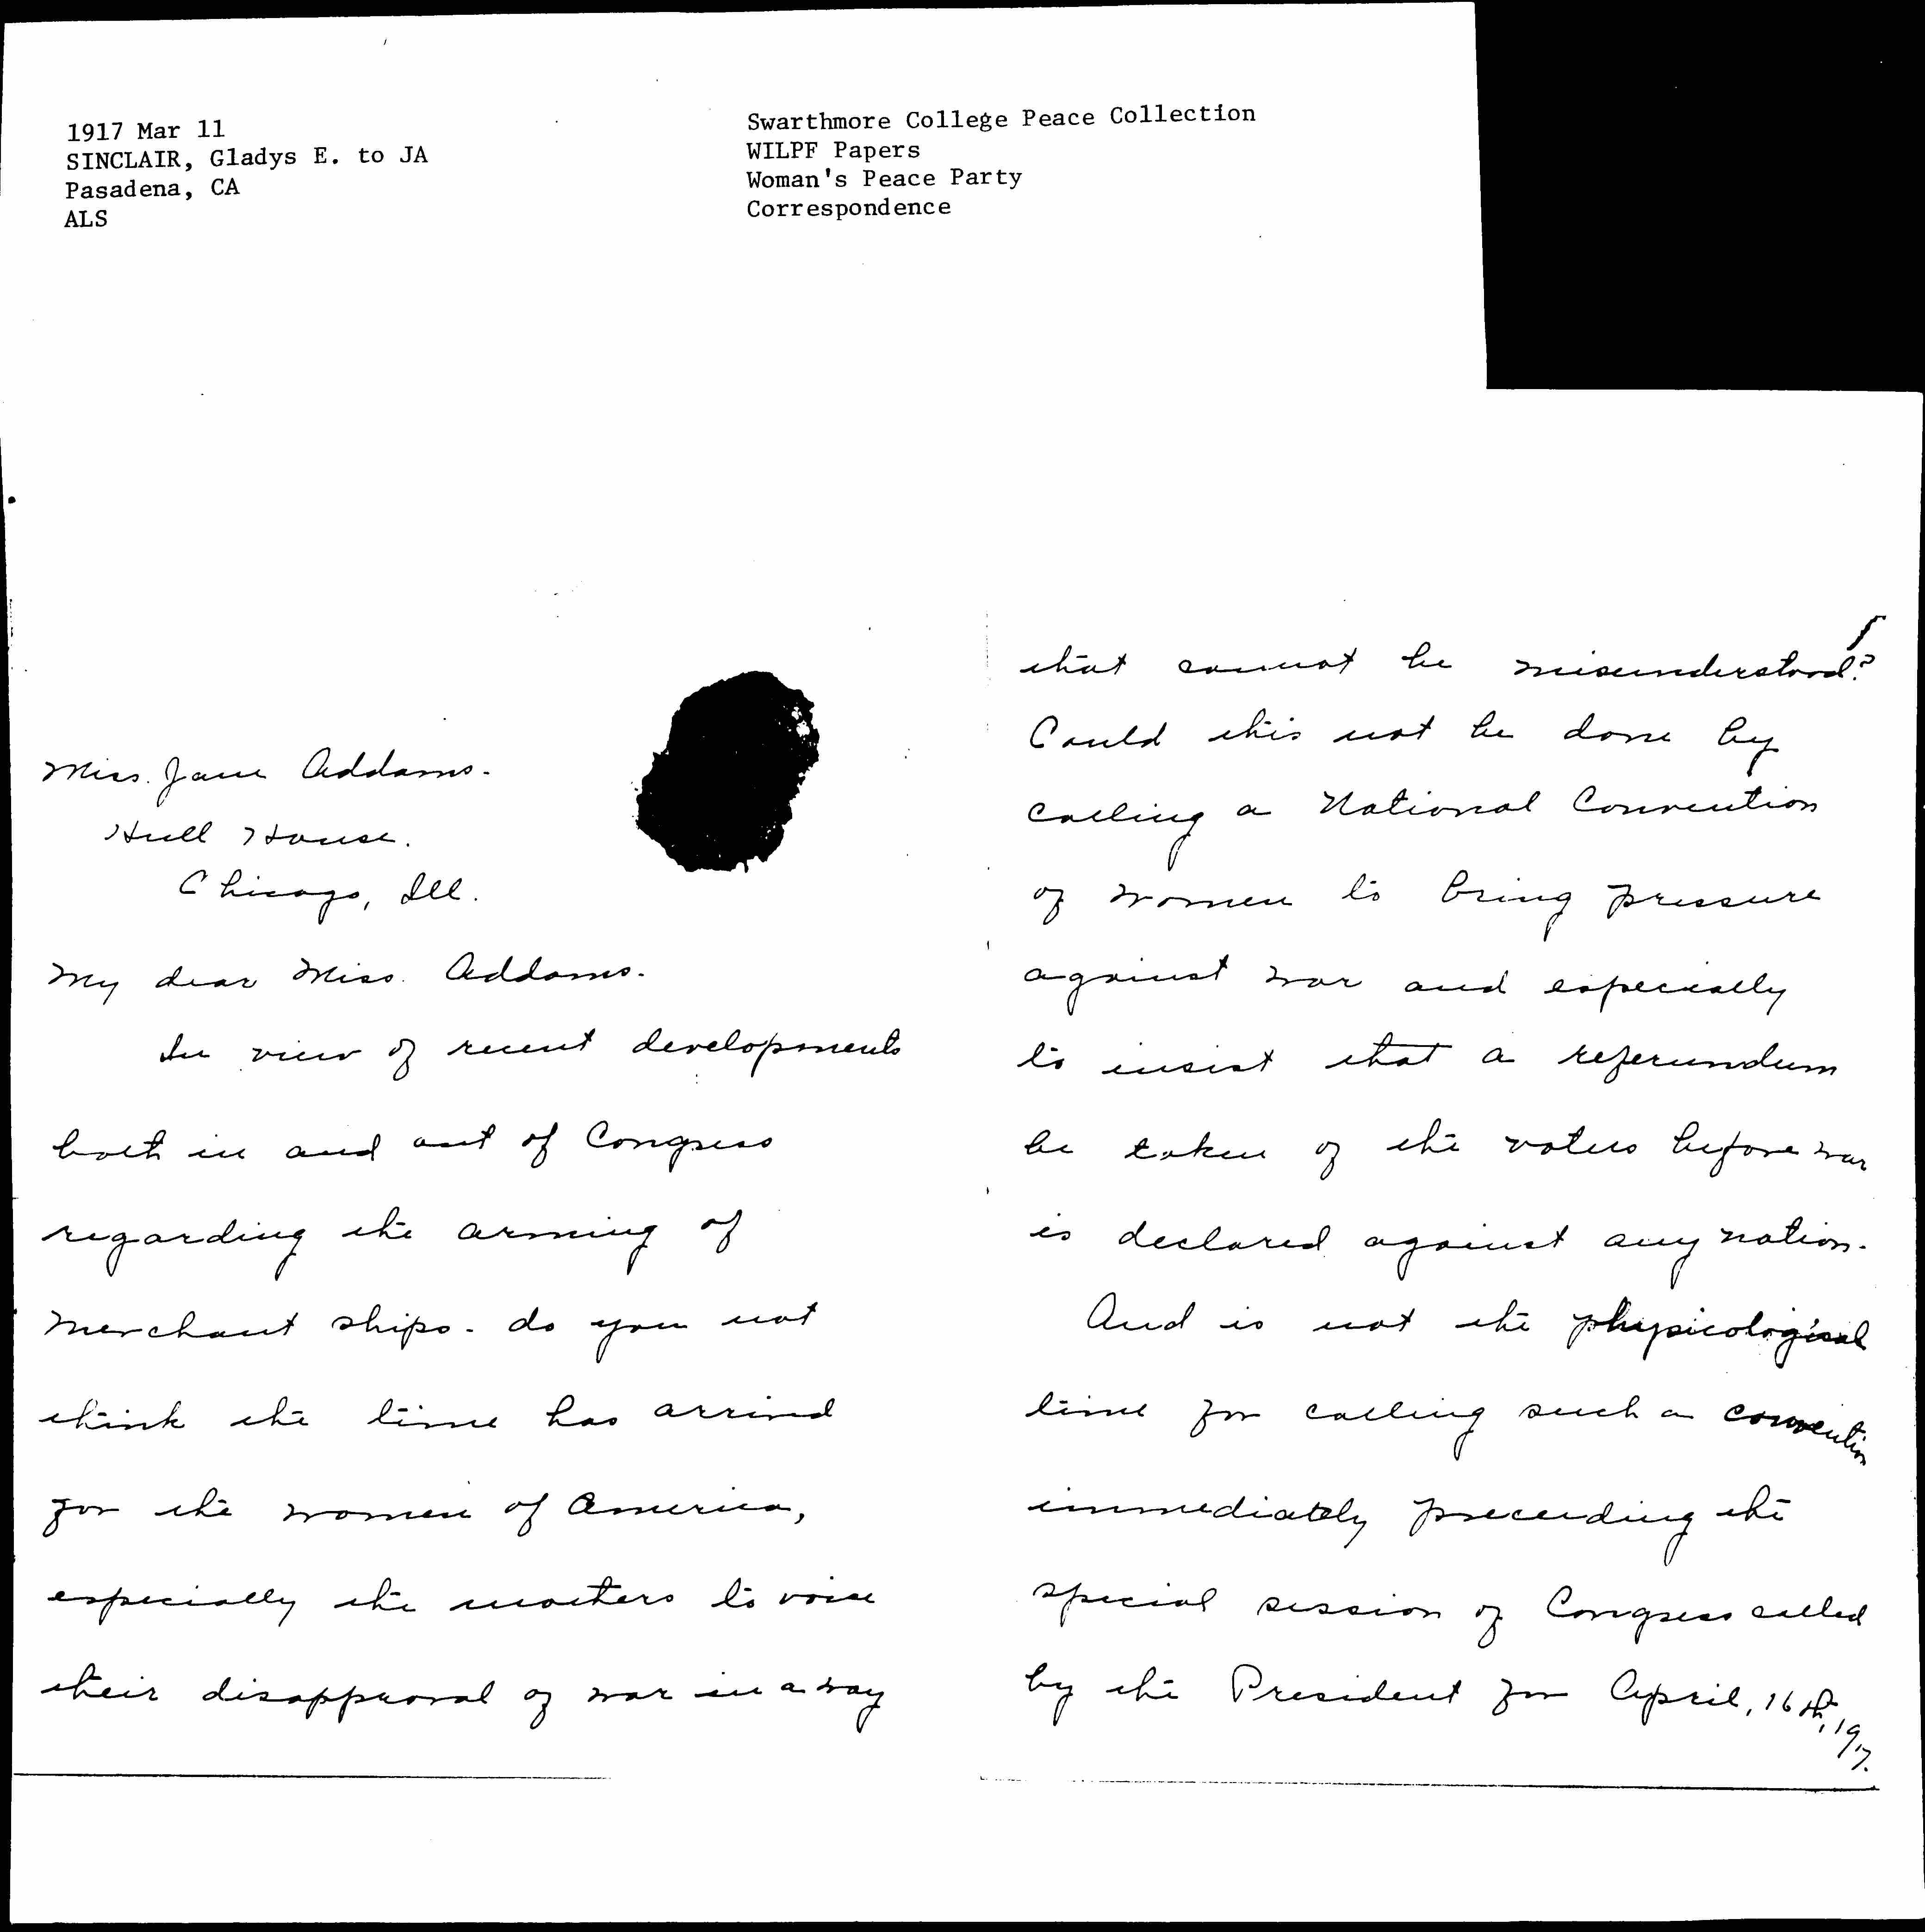 1917 Mar 11
SINCLAIR, Gladys E. to JA
Pasadena, CA
ALS
Swarthmore College Peace Collection
WILPF Papers
Woman's Peace Party
Correspondence
Miss. Jane Addams.
Hull House.
Chicago, Ill.
My dear Miss. Addams.
In view of recent developments
both in and out of Congress
regarding the arming of
merchant ships. do you not
think the time has arrived
for the women of America,
especially the mothers to voice
their disapproval of war in a way
that cannot be misunderstood?
Could this not be done by
calling a National Convention
of women to bring pressure
against war and especially
to insist that a referundum
be taken of the voters before war
is declared against any nation.
And is not the physicological
time for calling such a convention
immediately preceeding the
special session of Congress called
by the President for April, 16th, 1917.